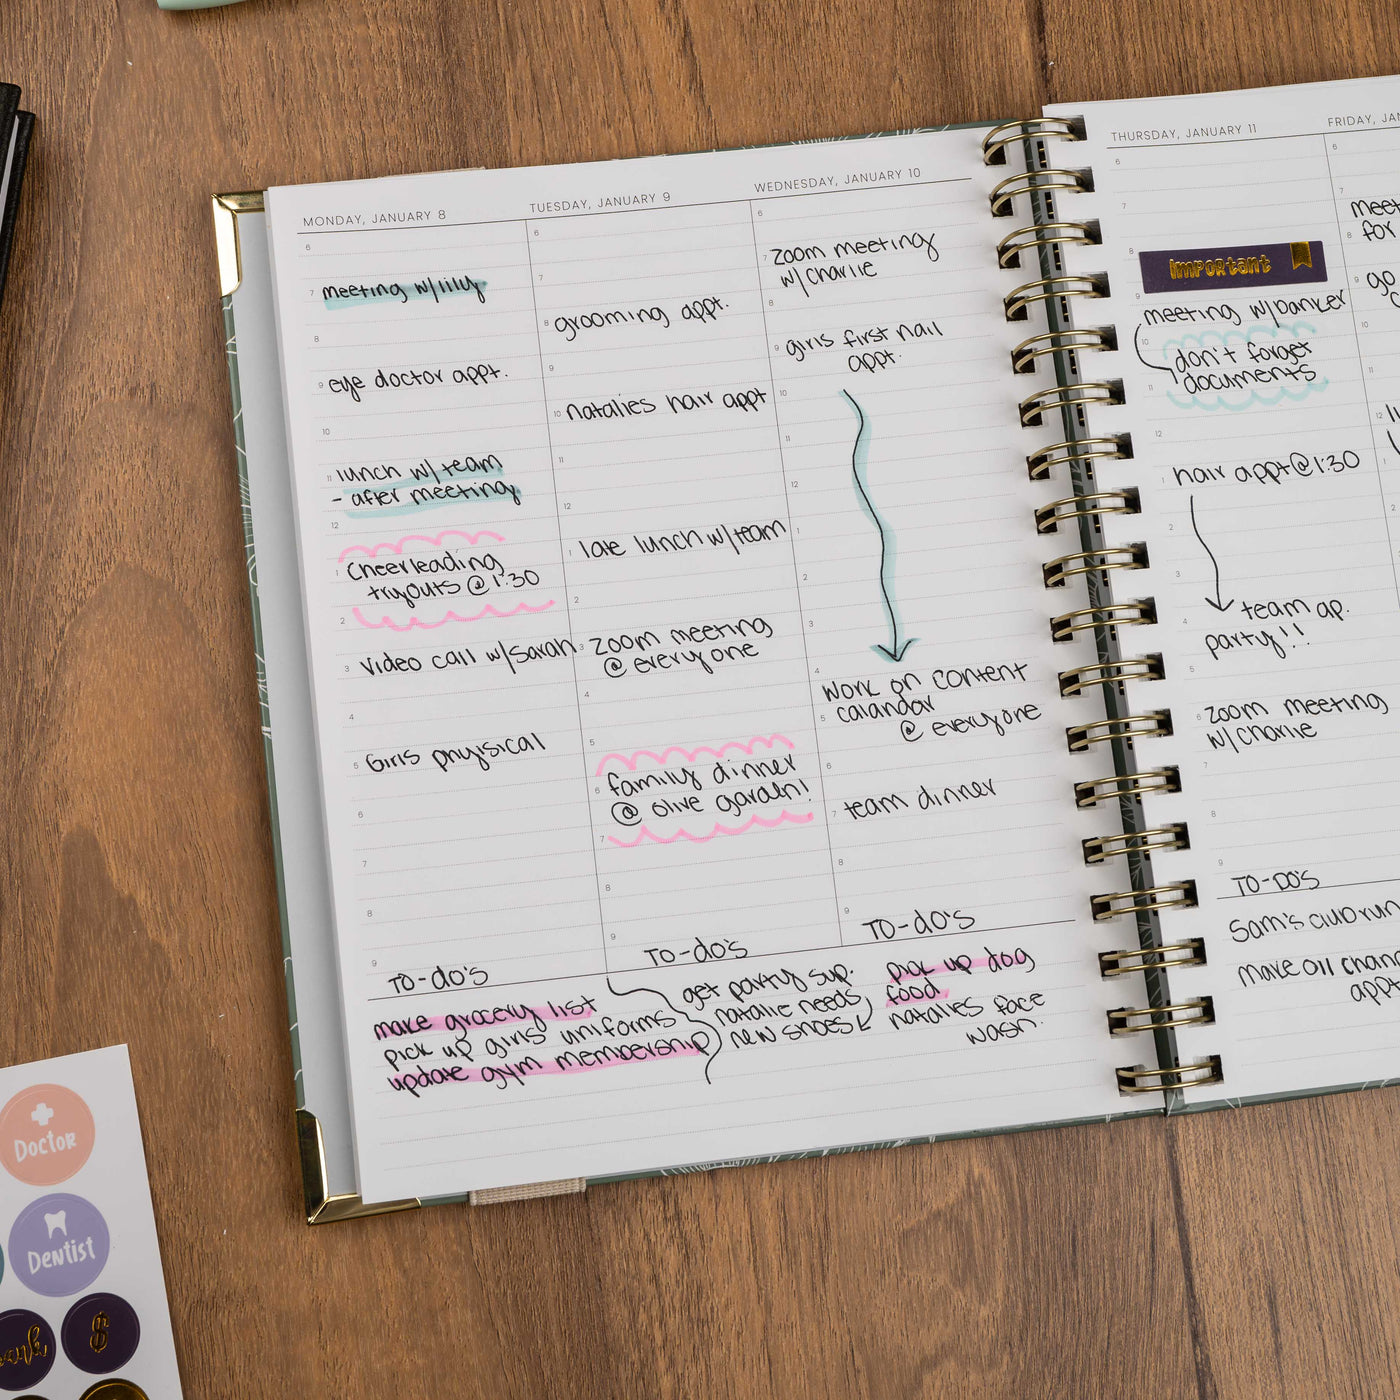 MONDAY, JANUARY 8
6
7 meeting w/lily
8
9 eye doctor appt.
10
11 lunch w/ team
- after meeting
12
1 Cheerleading
tryouts @ 1:30
2
3 video call w/Sarah
4
5 Girls phyisical
6
7
8
9
TO-do's
make grocery list
pick up girls' uniforms
update gym membership
TUESDAY, JANUARY 9
6
7
8 grooming appt.
9
10 natalies hair appt
11
12
1 late lunch w/team
2
3 zoom meeting
@ everyone
4
5
6 family dinner
@ olive garden!
7
8
9
TO-do's
get party sup.
natalie needs
new shoes
WEDNESDAY, JANUARY 10
6
7 zoom meeting
w/ Charlie
8
9 girls first nail
appt.
10
11
12
1
2
3
4
work on content
5 calandar
@ everyone
6
7 team dinner
8
9
TO-do's
pick up dog
food
natalies face
wash.
THURSDAY, JANUARY 11
6
7
8
Important
9
meeting w/banker
10 don't forget
11 documents
12
1 hair appt@1:30
2
3
4 team ap.
party!!
5
6 zoom meeting
w/Charlie
7
8
9
TO-DO'S
Sam's club run
make oil chan
appt
FRIDAY, JAN
6
meet
8 for
9 go
10
12
1
2
Doctor
Dentist
$